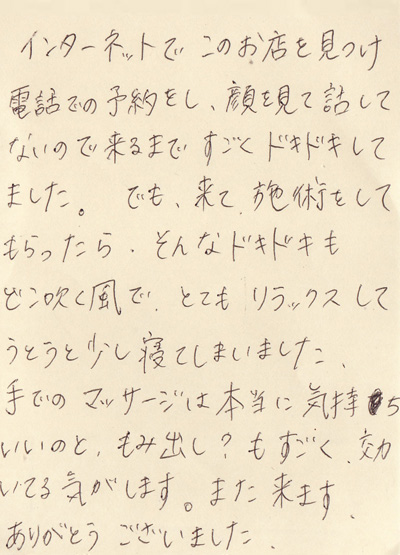 インターネットで このお店を見つけ
電話での予約をし、顔を見て話して
ないので来るまで すごく ドキドキして
ました。 でも、来て、施術をして
もらったら、そんなドキドキも
どこ吹く風で、とても リラックスして
うとうと少し寝てしまいました、
手での マッサージは本当に気持ち
いいのと、もみ出し?もすごく、効
いてる気がします。また来ます、
ありがとう ございました、